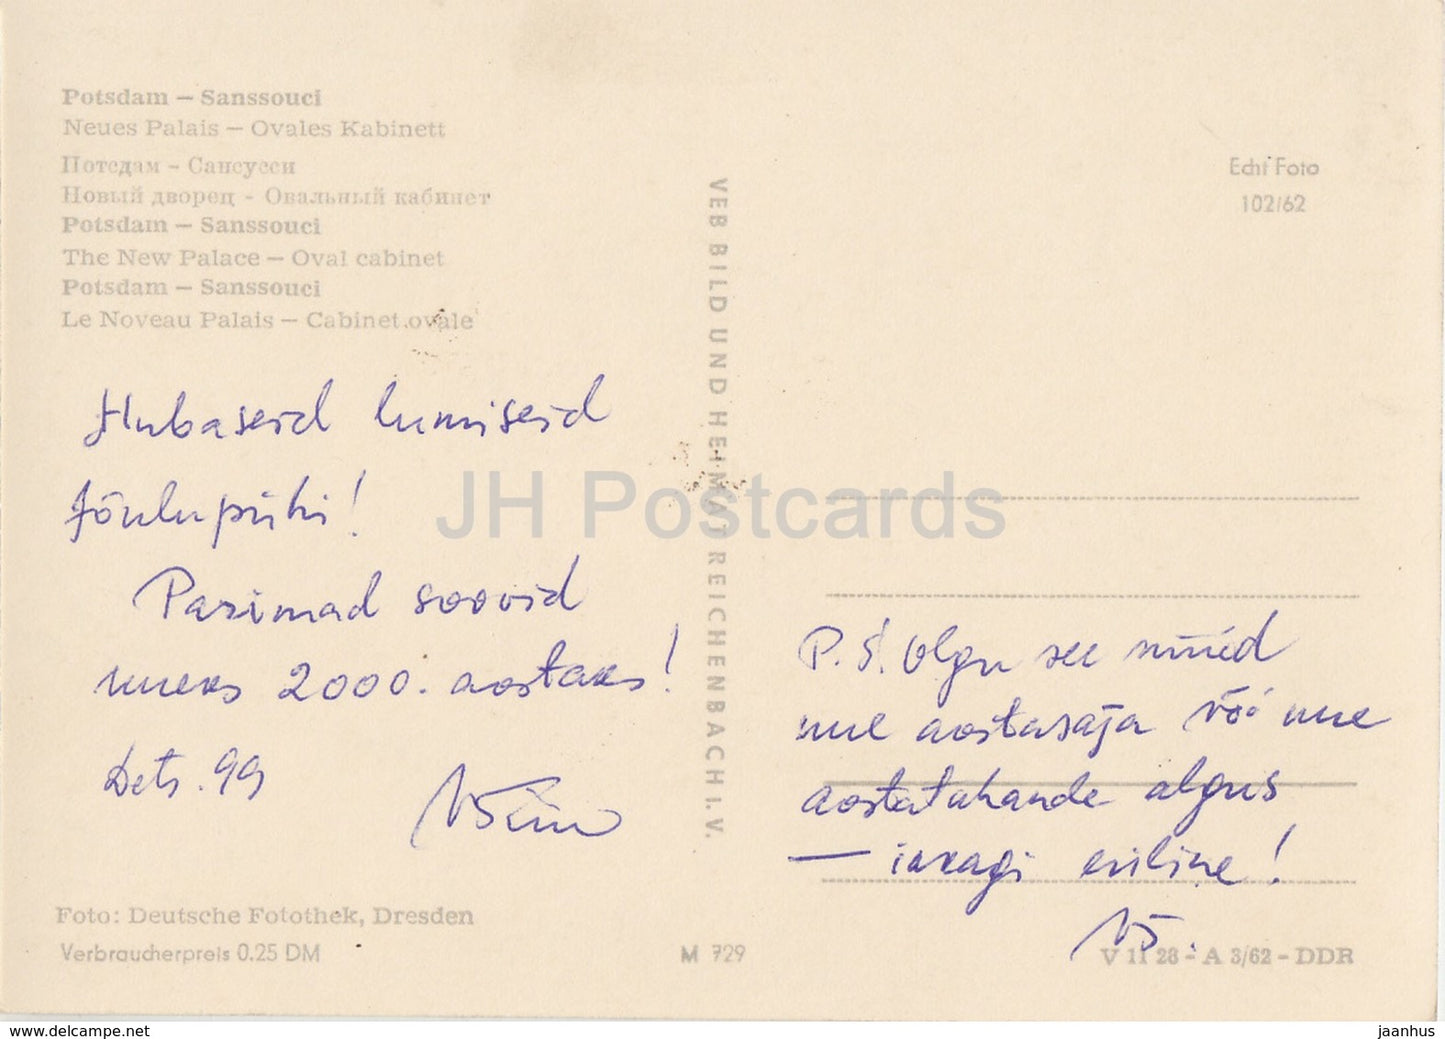 Potsdam — Sanssouci
Neues Palais — Ovales Kabinett
Потсдам - Сансусси
Новый дворец - Овальный кабинет
Potsdam — Sanssouci
The New Palace — Oval cabinet
Potsdam — Sanssouci
Le Noveau Palais — Cabinet ovale
Hubaseid lumiseid
jõulupühi!
Parimad soovid
uueks 2000. aastaks!
Dets. 99
Foto: Deutsche Fotothek, Dresden
Verbraucherpreis 0.25 DM
VEB BILD UND HEIMAT REICHENBACH I. V.
M 729
Echt Foto
102/62
P.S. Olgu see nüüd
uue aastasaja või uue
aastatuhande algus
— ikkagi eriline!
V 11 28 - A 3/62 - DDR
JH Postcards
www.delcampe.net
jaanhus